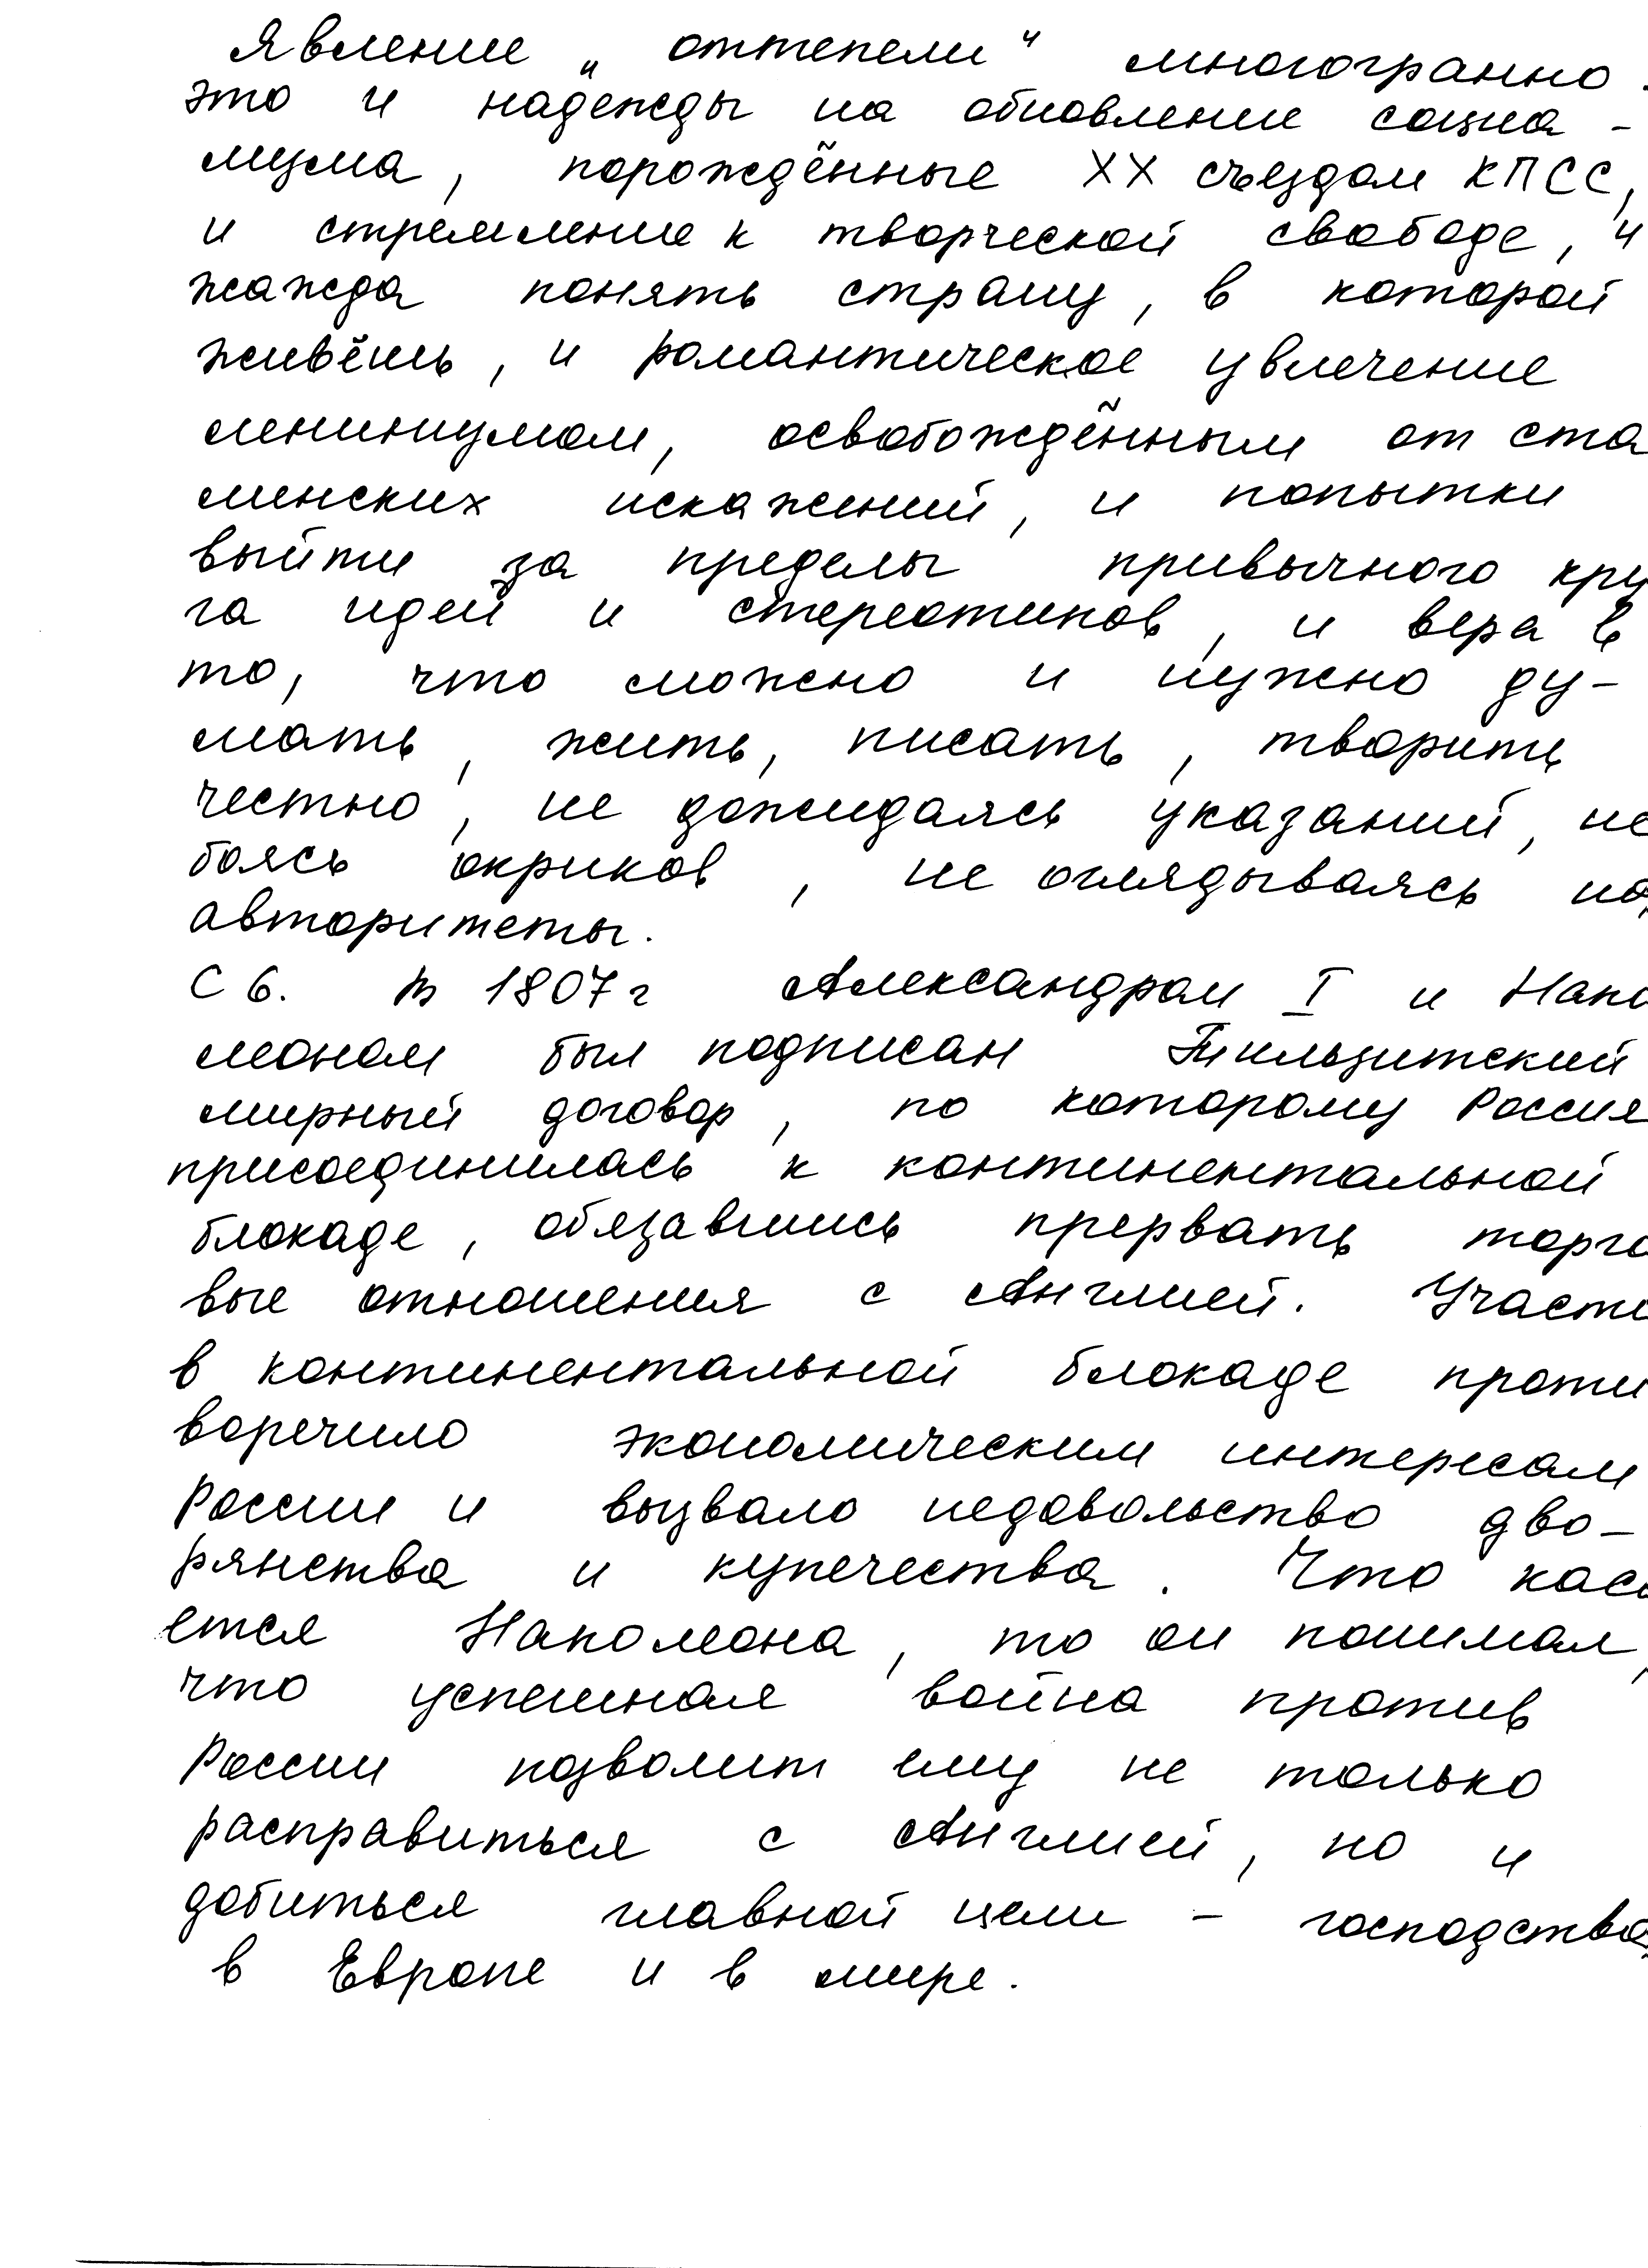 Явление „оттепели“ многогранно.
это и надежды на обновление социа-
лизма, порождённые XX съездом КПСС,
и стремление к творческой свободе, и
жажда понять страну, в которой
живёшь, и романтическое увлечение
ленинизмом, освобождённым от ста
линских искажений, и попытки
выйти за пределы привычного кру
га идей и стереотипов, и вера в
то, что можно и нужно ду-
мать, жить, писать, творить
честно, не дожидаясь указаний, не
боясь окриков, не оглядываясь на
авторитеты.
С 6. В 1807 г Александром I и Напо
леоном был подписан Тильзитский
мирный договор, по которому Россия
присоединилась к континентальной
блокаде, обязавшись прервать торго
вые отношения с Англией. Участи
в континентальной блокаде проти
воречило экономическим интересам
России и вызвало недовольство дво-
рянства и купечества. Что каса
ется Наполеона, то он понимал,
что успешная война против
России позволит ему не только
расправиться с Англией, но и
добиться главной цели - господства
в Европе и в мире.